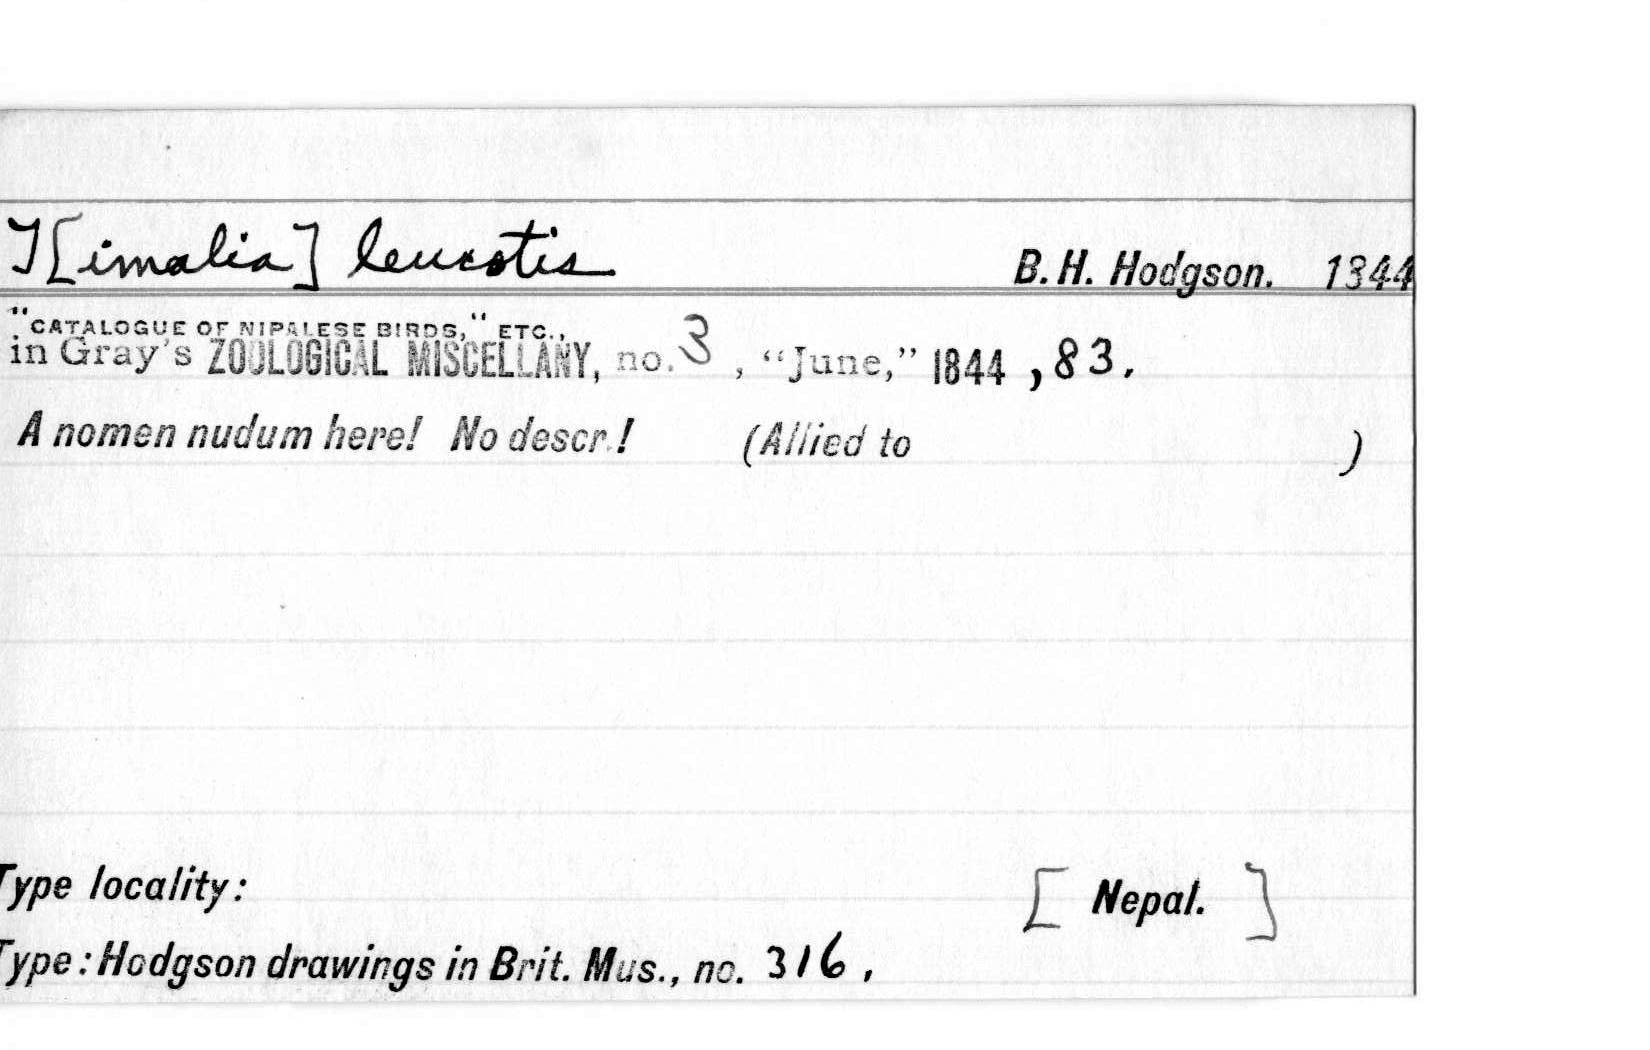 T[imalia] leucotis B. H. Hodgson. 1844
"CATALOGUE OF NIPALESE BIRDS," ETC.,
in Gray's ZOOLOGICAL MISCELLANY, no. 3, "June," 1844, 83.
A nomen nudum here! No descr.! (Allied to )
Type locality: [Nepal.]
Type: Hodgson drawings in Brit. Mus., no. 316.